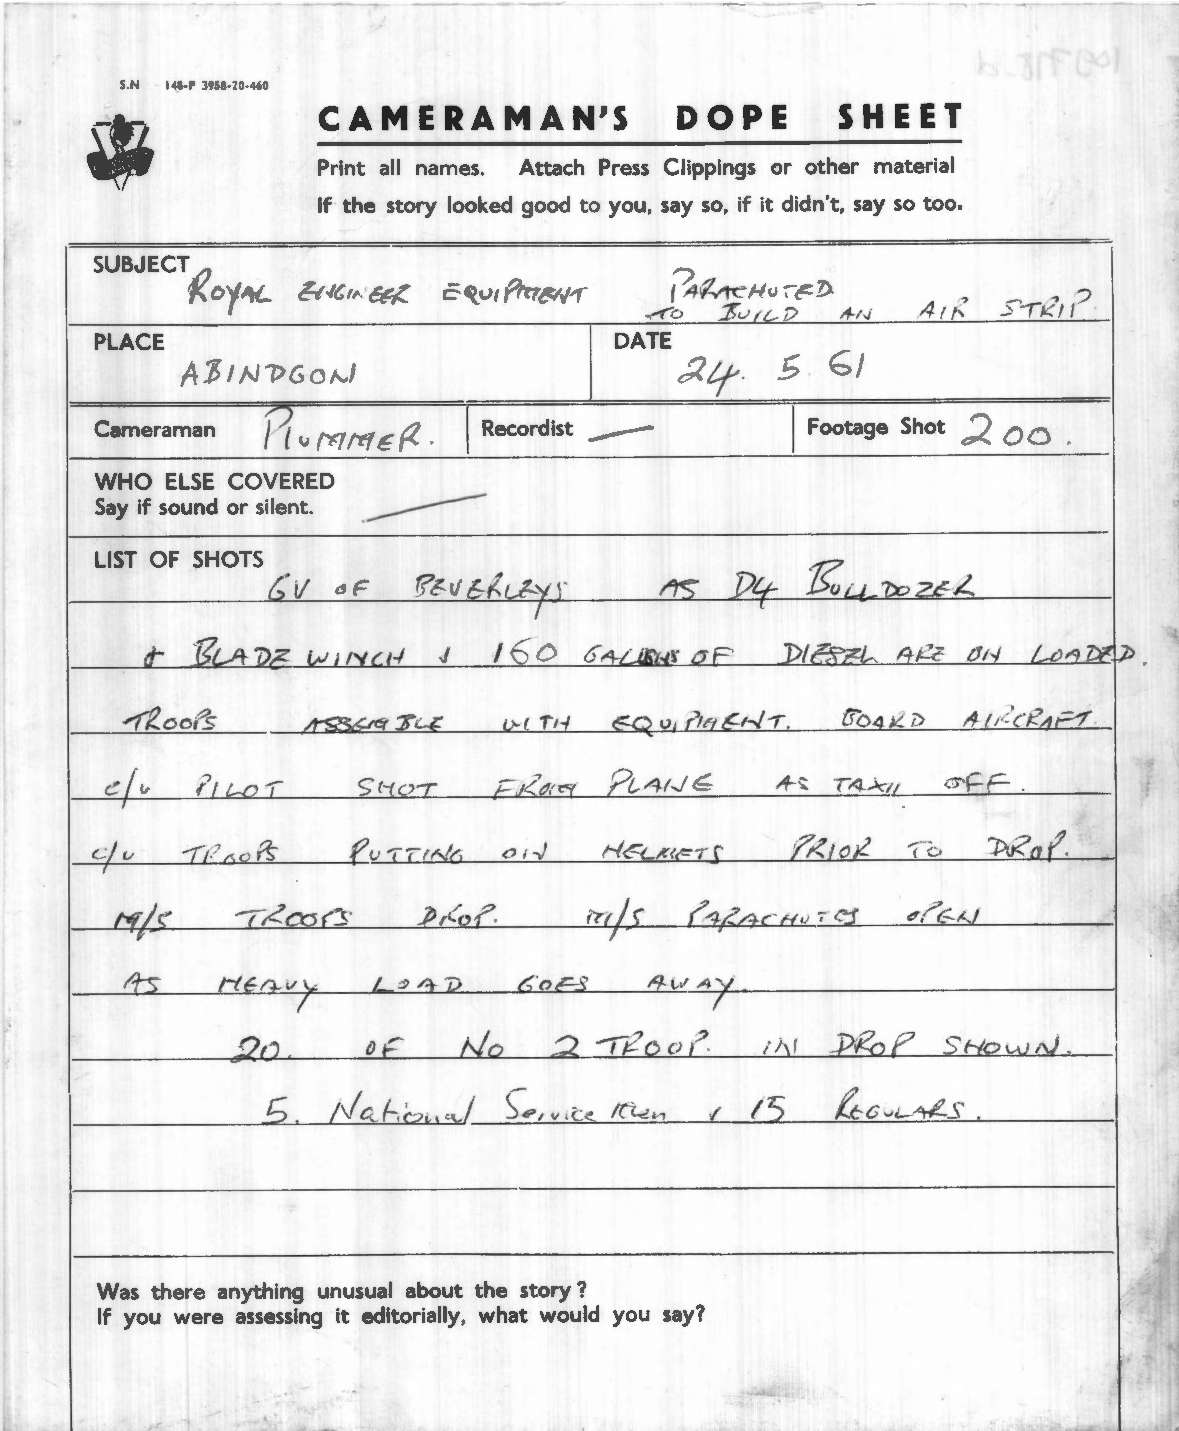 S.N 148-P 3958-20-460
CAMERAMAN'S DOPE SHEET
Print all names. Attach Press Clippings or other material
If the story looked good to you, say so, if it didn't, say so too.
SUBJECT
ROYAL ENGINEER EQUIPMENT PARACHUTED
TO BUILD AN AIR STRIP.
PLACE
ABINDGON
DATE
24. 5. 61
Cameraman PLUMMER.
Recordist —
Footage Shot 200.
WHO ELSE COVERED
Say if sound or silent.
LIST OF SHOTS
GV OF BEVERLEYS AS D4 BULLDOZER
+ BLADE WINCH + 160 GALLONS OF DIESEL ARE ON LOADED.
TROOPS ASSEMBLE WITH EQUIPMENT. BOARD AIRCRAFT.
C/U PILOT SHOT FROM PLANE AS TAXII OFF.
C/U TROOPS PUTTING ON HELMETS PRIOR TO DROP.
M/S TROOPS DROP. M/S PARACHUTES OPEN
AS HEAVY LOAD GOES AWAY.
20. OF No 2 TROOP. IN DROP SHOWN.
5. National Service Men + 15 REGULARS.
Was there anything unusual about the story?
If you were assessing it editorially, what would you say?